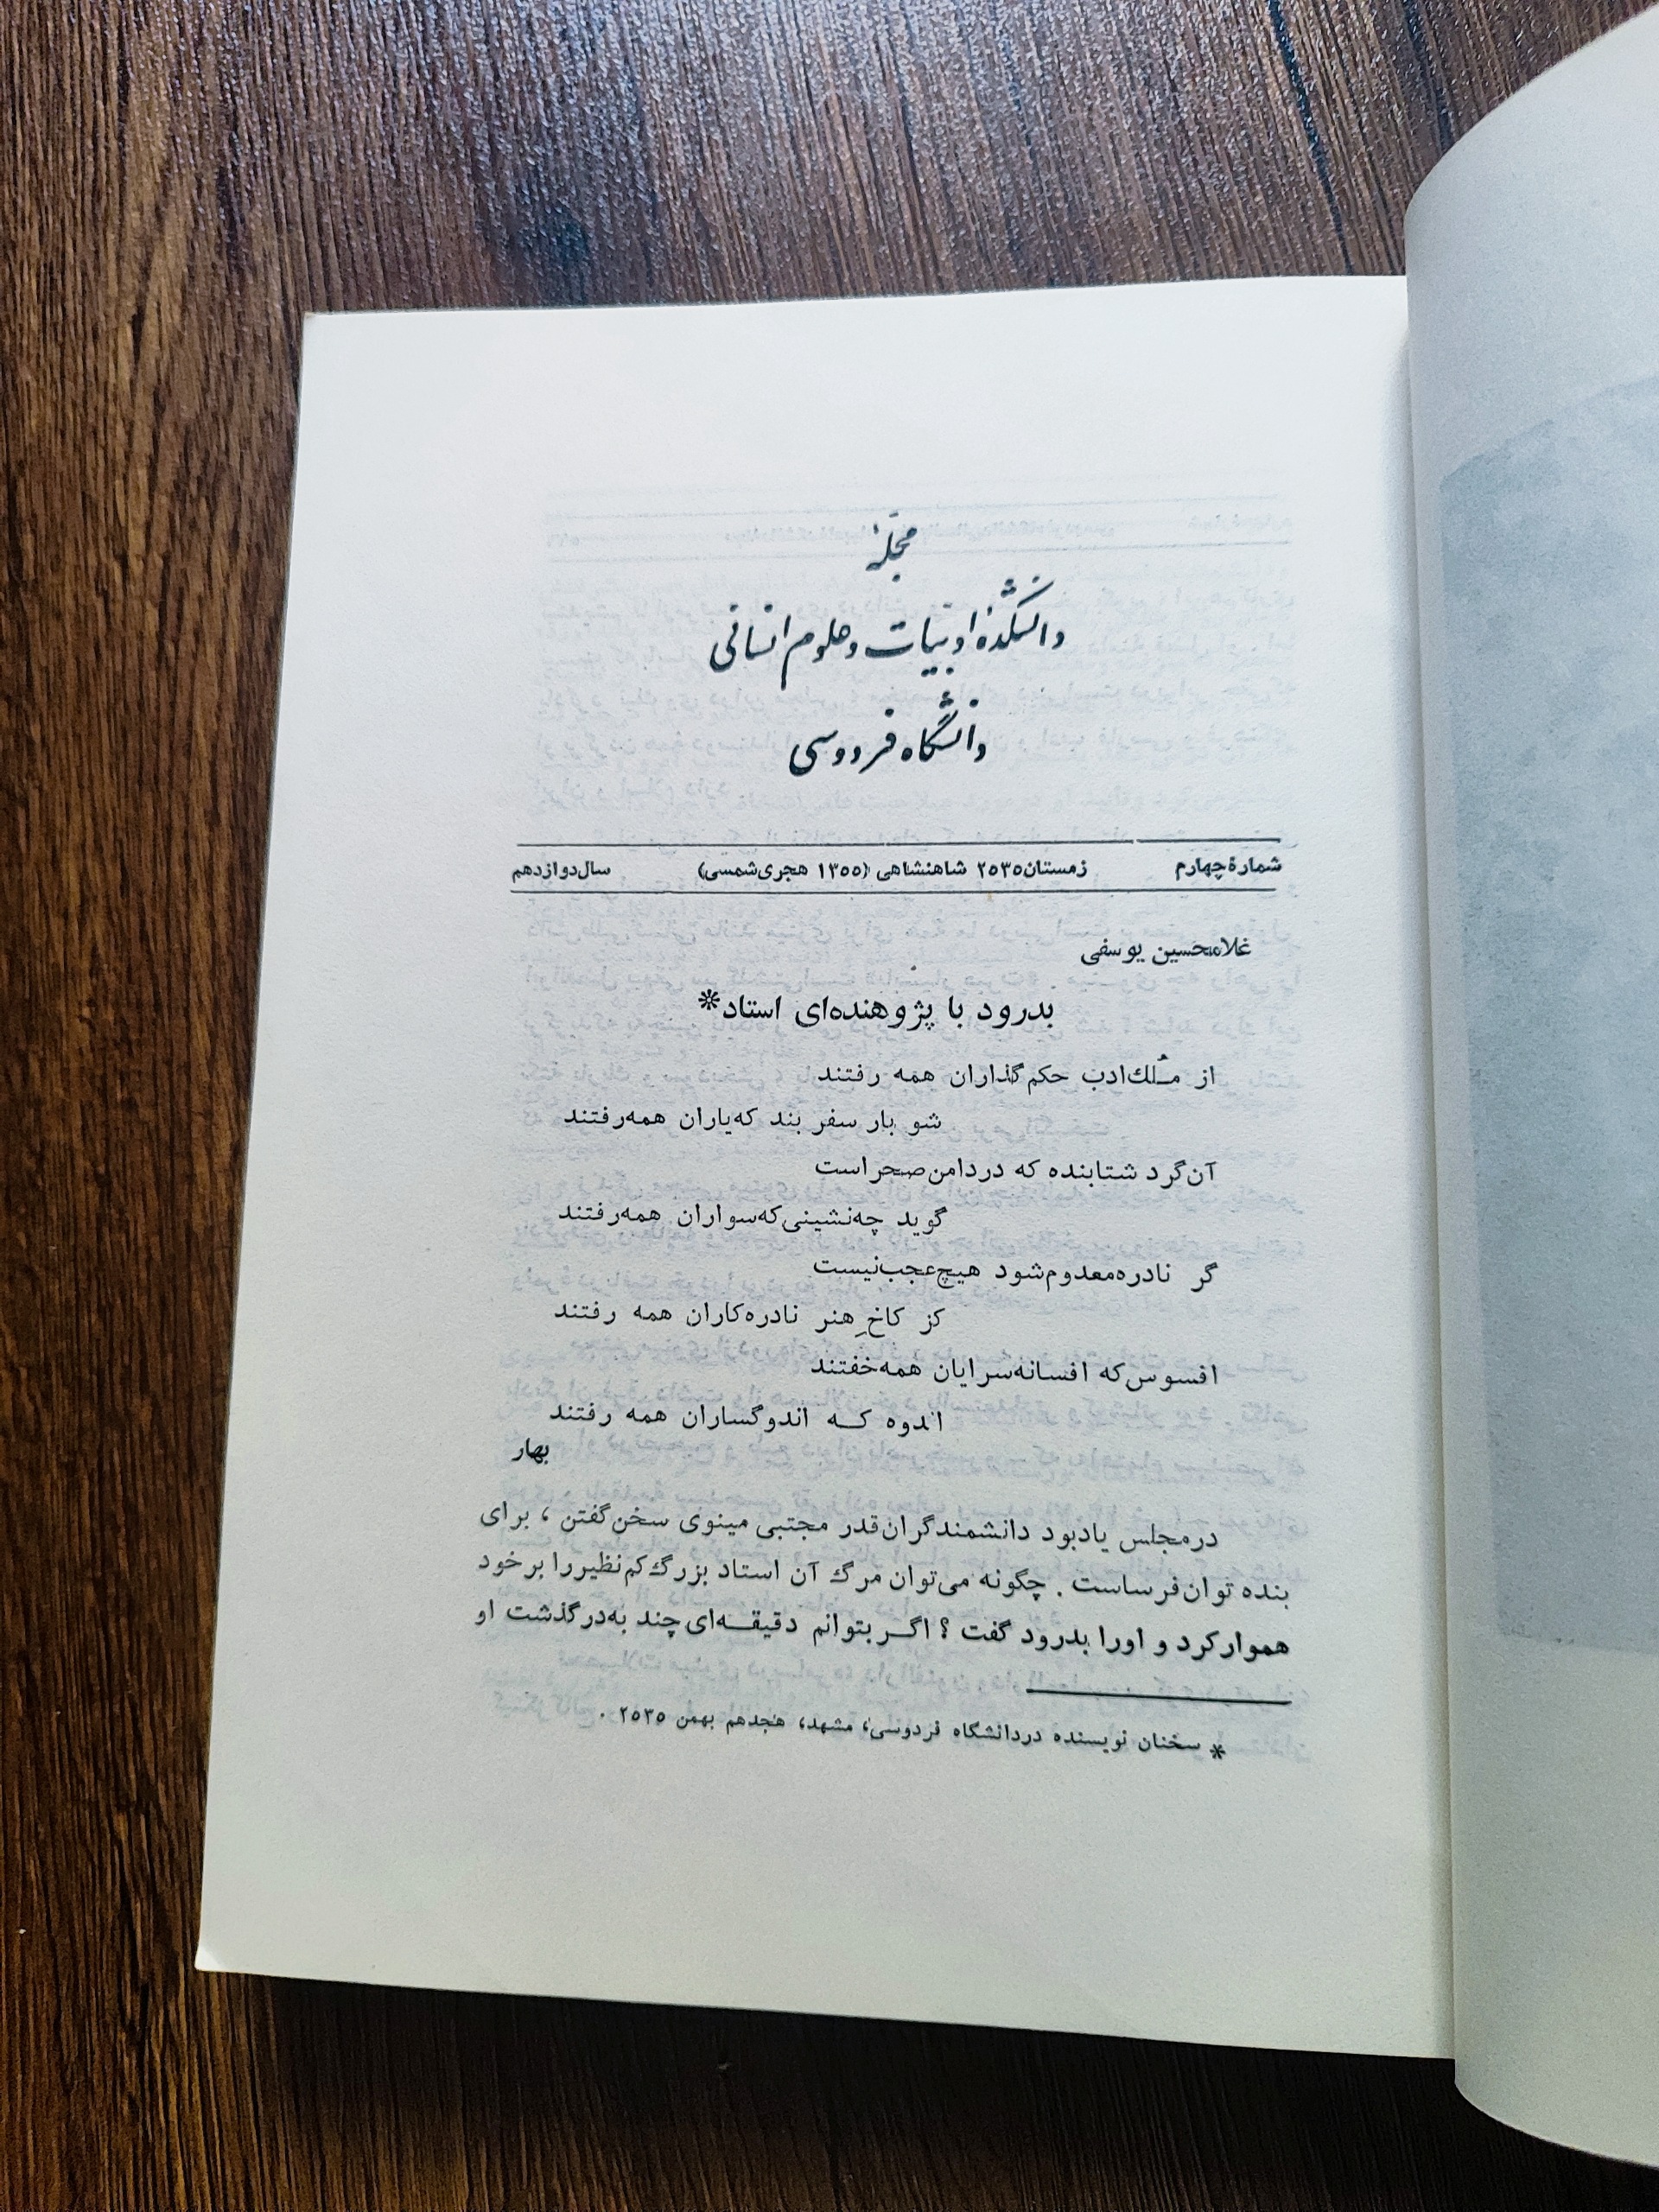 مجلهٔ
دانشکدهٔ ادبیات و علوم انسانی
دانشگاه فردوسی
شمارهٔ چهارم زمستان ۲۵۳۵ شاهنشاهی (۱۳۵۵ هجری شمسی) سال دوازدهم
غلامحسین یوسفی
بدرود با پژوهنده‌ای استاد*
از مُلك ادب حکم گذاران همه رفتند
شو بار سفر بند که یاران همه رفتند
آن گرد شتابنده که در دامن صحراست
گوید چه نشینی که سواران همه رفتند
گر نادره معدوم شود هیچ عجب نیست
کز کاخِ هنر نادره کاران همه رفتند
افسوس که افسانه سرایان همه خفتند
اندوه که اندوگساران همه رفتند
بهار
در مجلس یادبود دانشمند گران قدر مجتبی مینوی سخن گفتن ، برای
بنده توان فرساست . چگونه می‌توان مرگ آن استاد بزرگ کم نظیر را بر خود
هموار کرد و او را بدرود گفت ؟ اگر بتوانم دقیقه‌ای چند به درگذشت او
* سخنان نویسنده در دانشگاه فردوسی، مشهد، هجدهم بهمن ۲۵۳۵ .